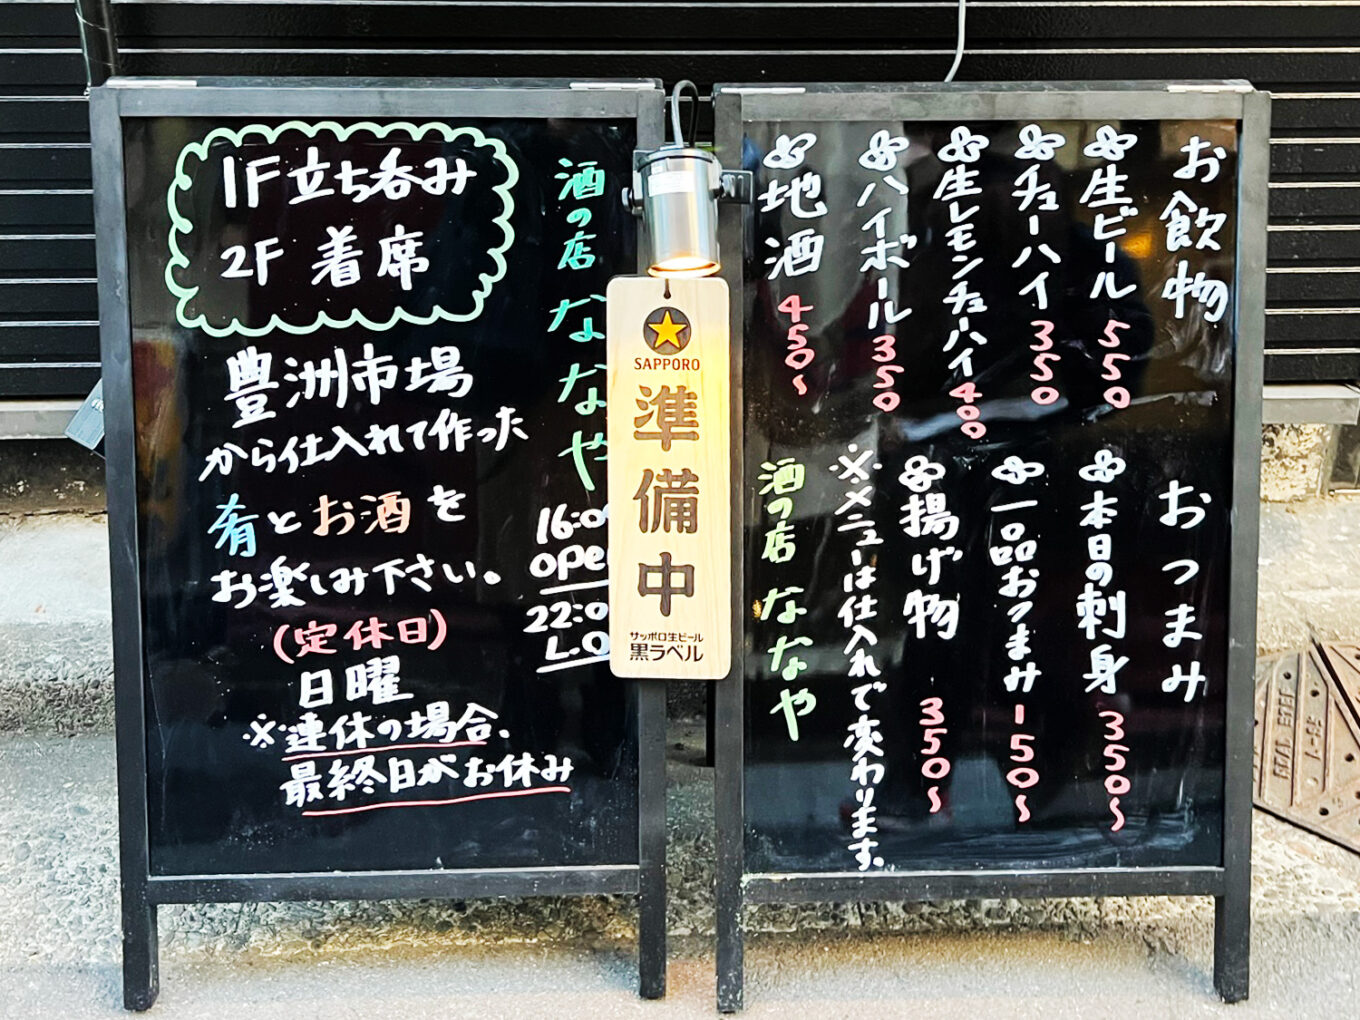 1F立ち呑み
2F 着席
酒の店 ななや
豊洲市場
から仕入れて作った
肴とお酒を
お楽しみ下さい。
(定休日)
日曜
※連休の場合、
最終日がお休み
16:0
open
22:0
L.O
SAPPORO
準備中
サッポロ生ビール
黒ラベル
お飲物
生ビール 550
チューハイ 350
生レモンチューハイ 400
ハイボール 350
地酒 450〜
おつまみ
本日の刺身 350〜
一品おつまみ 150〜
揚げ物 350〜
※メニューは仕入れで変わります。
酒の店 ななや